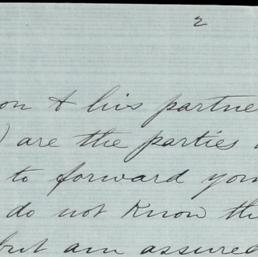 2
on & his partne
) are the parties
to forward you
do not know th
but am assured